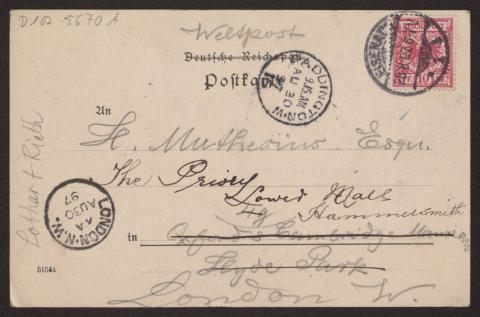 D102-5670 A
Weltpost
Deutsche Reichspost
Postkarte
PADDINGTON·W.
9.15.AM
AU 30
97
10
An
H. Muthesius Esqu.
The Priory
Lower Mall
Hammersmith
49
in Oxford & Cambridge Mansions
Hyde Park
London W.
LONDON·N.W.
AA
AU30
97
Lothar + Rieth
5154z